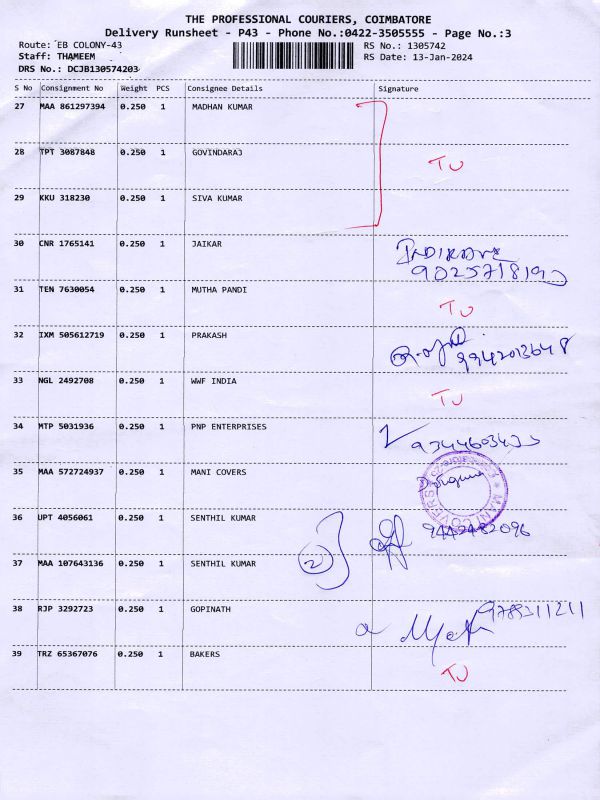 THE PROFESSIONAL COURIERS, COIMBATORE
Delivery Runsheet - P43 - Phone No.:0422-3505555 - Page No.:3
Route: EB COLONY-43 RS No.: 1305742
Staff: THAMEEM RS Date: 13-Jan-2024
DRS No.: DCJB130574203
S No Consignment No Weight PCS Consignee Details Signature
27 MAA 861297394 0.250 1 MADHAN KUMAR
28 TPT 3087848 0.250 1 GOVINDARAJ TU
29 KKU 318230 0.250 1 SIVA KUMAR
30 CNR 1765141 0.250 1 JAIKAR
31 TEN 7630054 0.250 1 MUTHA PANDI TU
32 IXM 505612719 0.250 1 PRAKASH 9942013648
33 NGL 2492708 0.250 1 WWF INDIA TU
34 MTP 5031936 0.250 1 PNP ENTERPRISES
35 MAA 572724937 0.250 1 MANI COVERS MANI COVERS
36 UPT 4056061 0.250 1 SENTHIL KUMAR
2
37 MAA 107643136 0.250 1 SENTHIL KUMAR
38 RJP 3292723 0.250 1 GOPINATH 9789311211
39 TRZ 65367076 0.250 1 BAKERS TU